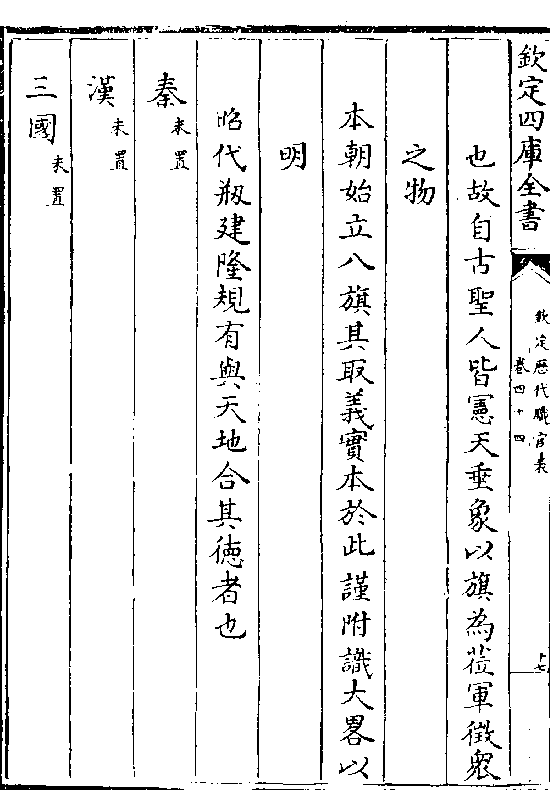 欽定四庫全書
欽定歷代職官表
卷四十四
十七
也故自古聖人皆憲天垂象以旗為蒞軍徵衆
之物
本朝始立八旗其取義實本於此謹附識大畧以
明
昭代剏建隆規有與天地合其徳者也
秦未置
漢未置
三國未置